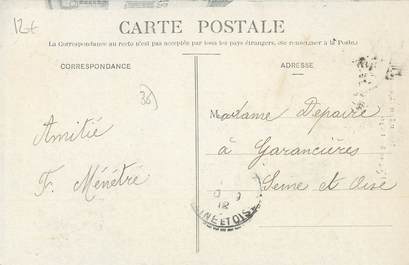 12€
CARTE POSTALE
La Correspondance au recto n'est pas acceptée par tous les pays étrangers. (Se renseigner à la Poste.)
CORRESPONDANCE
ADRESSE
38)
Amitié
F. Ménétré
Madame Depaire
à Garancières
Seine et Oise
9
12
INE ET OIS